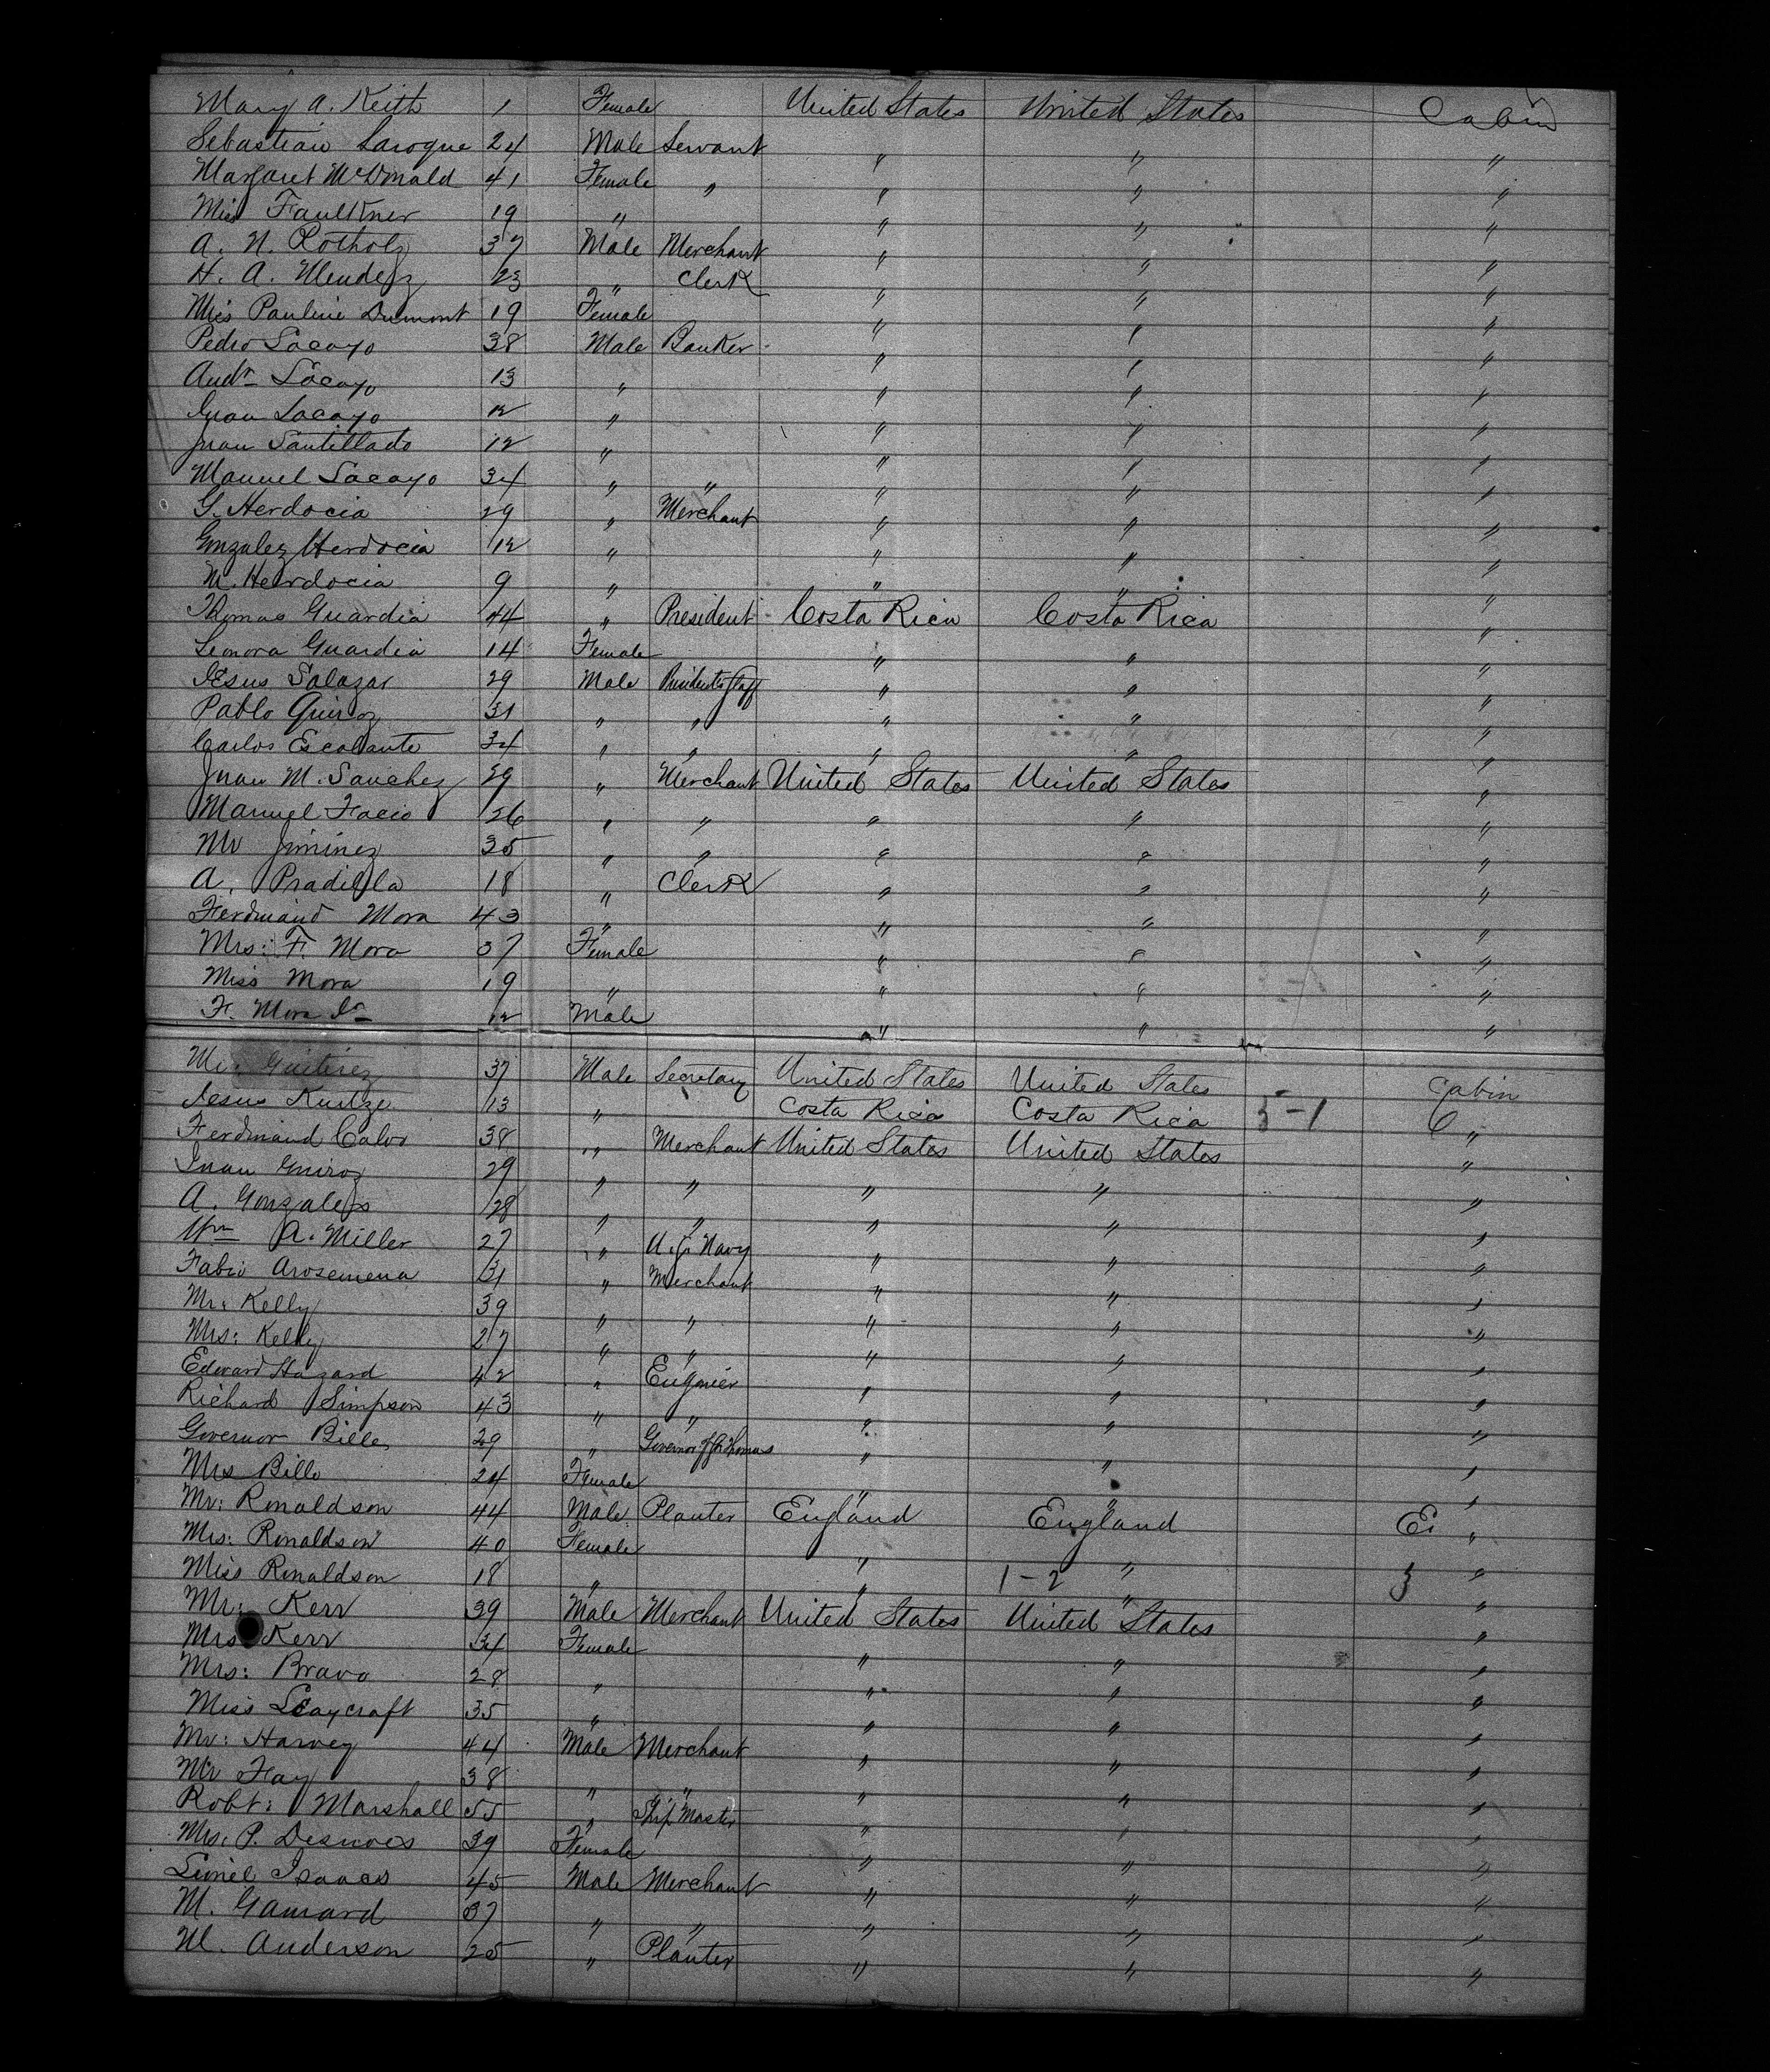 Mary A. Keith 1 Female United States United States Cabin
Sebastian Laroque 24 Male Servant " " "
Margaret McDonald 41 Female " " " "
Miss Faulkner 19 " " " "
A. N. Rotholz 37 Male Merchant " " "
H. A. Mendez 23 " Clerk " " "
Miss Pauline Dumont 19 Female " " "
Pedro Lacayo 38 Male Banker " " "
Andr Lacayo 13 " " " "
Juan Lacayo 12 " " " "
Juan Santillado 12 " " " "
Manuel Lacayo 34 " " " " "
G. Herdocia 29 " Merchant " " "
Gonzalez Herdocia 12 " " " "
N. Herdocia 9 " " " "
Thomas Guardia 44 " President Costa Rica Costa Rica "
Leonora Guardia 14 Female " " "
Jesus Salazar 29 Male Presidents Staff " " "
Pablo Quiroz 31 " " " " "
Carlos Escalante 34 " " " " "
Juan M. Sanchez 29 " Merchant United States United States "
Manuel Facio 26 " " " " "
Mr Jiminez 35 " " " " "
A. Pradilla 18 " Clerk " " "
Ferdinand Mora 43 " " " "
Mrs: F. Mora 37 Female " " "
Miss Mora 19 " " " "
F. Mora Jr 12 Male " " "
Mr. Gutirez 37 Male Secretary United States United States Cabin
Jesus Kurtze 13 " Costa Rica Costa Rica 5-1 "
Ferdinand Calvo 38 " Merchant United States United States "
Juan Quiroz 29 " " " " "
A. Gonzales 28 " " " " "
Wm A. Miller 27 " U.S. Navy " " "
Fabio Arosemena 31 " Merchant " " "
Mr: Kelly 39 " " " " "
Mrs: Kelly 27 " " " " "
Edward Hazard 42 " Engineer " " "
Richard Simpson 43 " " " " "
Governor Bille 29 " Governor of St Thomas " " "
Mrs Bille 24 Female " " "
Mr: Ronaldson 44 Male Planter England England "
Mrs: Ronaldson 40 Female " " "
Miss Ronaldson 18 " " 1-2 " 3 "
Mr: Kerr 39 Male Merchant United States United States "
Mrs Kerr 34 Female " " "
Mrs: Bravo 28 " " " "
Miss Leaycraft 35 " " " "
Mr: Harvey 44 Male Merchant " " "
Mr Fay 38 " " " " "
Robt: Marshall 55 " Ship Master " " "
Mrs: P. Desnoes 39 Female " " "
Lionel Isaacs 45 Male Merchant " " "
M. Gamard 37 " " " " "
M. Anderson 25 " Planter " " "